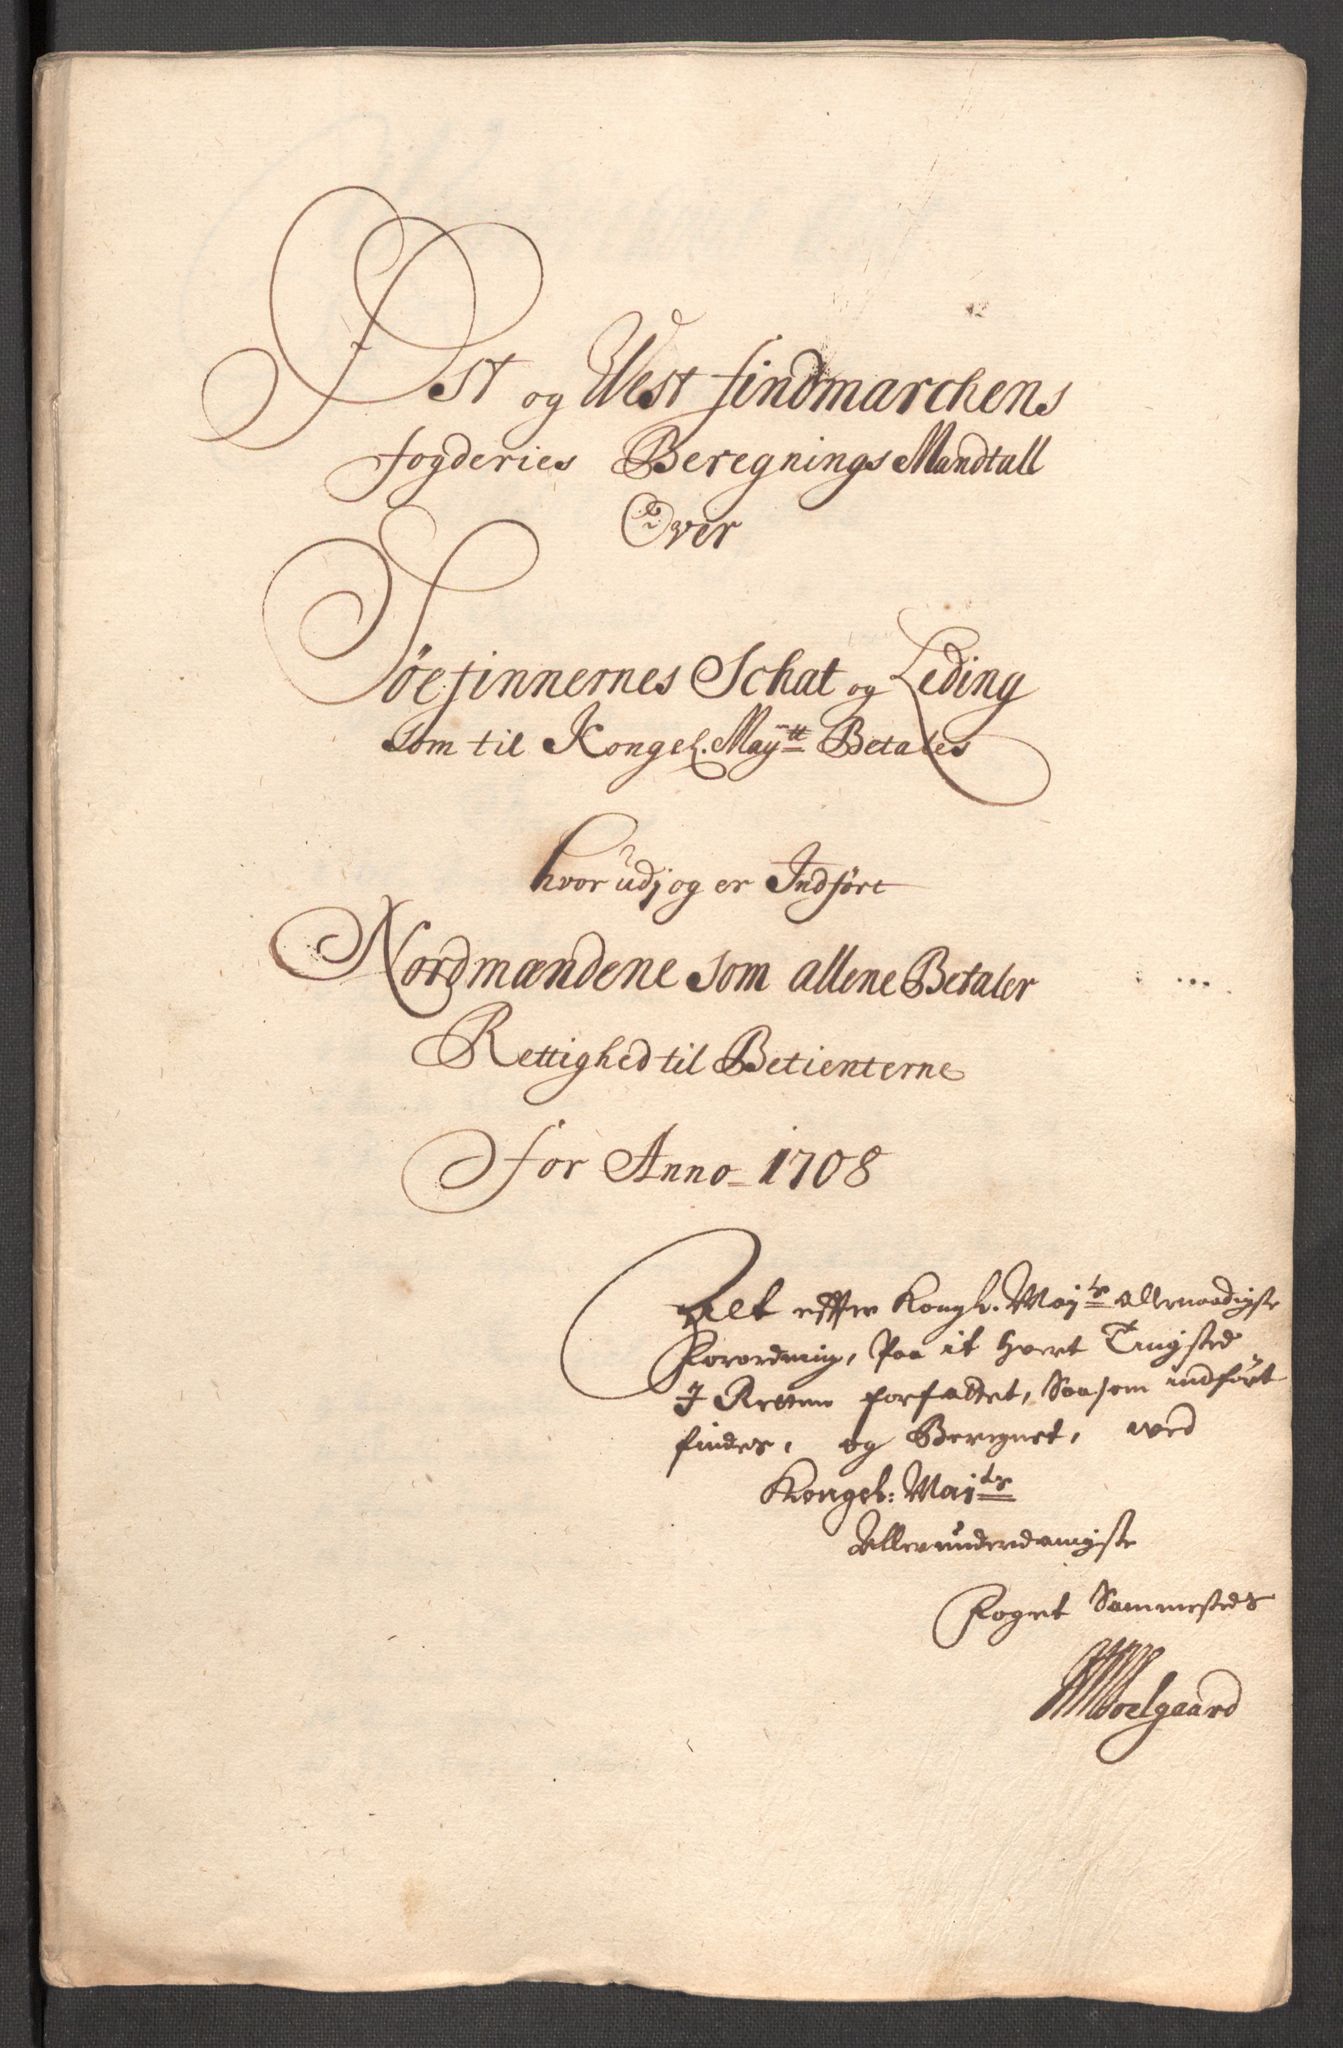 Øst og West findmarchens
fogderies Beregnings Mandtall
Over
Søefinnernes Schat og Leding
som til Kongel. Maytt Betales
hvor udj og er Indført
Nordmændene som allene Betaler
Rettighed til Betienterne
for Anno 1708
Alt effter Kongl. Mayts allernaadigste
Forordning, Paa it hvert Tingsted
I Retten forfattet, Saasom indført
findes, og Beregnet, ved
Kongel: Mayts
Allerunderdanigste
Foget Sammesteds
Soelgaard